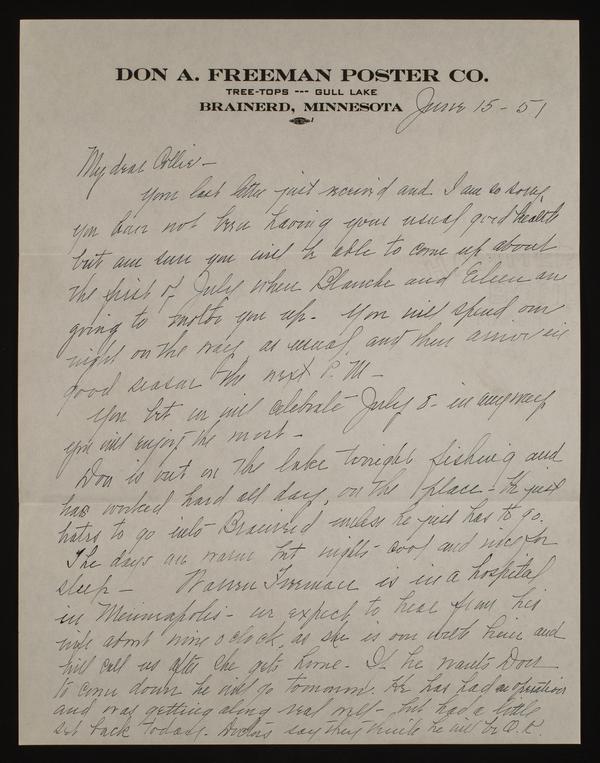 DON A. FREEMAN POSTER CO.
TREE-TOPS --- GULL LAKE
BRAINERD, MINNESOTA June 15-51
My dear Ollie-
Your last letter just received and I am so sorry
you have not been having your usual good health
but am sure you will be able to come up about
the first of July when Blanche and Eileen are
going to motor you up. You will spend one
night on the way as usual and then arrive in
good season the next P.M-
You bet we will celebrate July 8- in any way
you will enjoy the most-
Don is out on the lake tonight fishing and
has worked hard all day, on the place- He just
hates to go into Brainerd unless he just has to go.
The days are warm but nights cool and nice for
sleep- Warren Freeman is in a hospital
in Minneapolis- we expect to hear from his
wife about nine o'clock, as she is over with him and
will call us after she gets home- If he wants Don
to come down he will go tomorrow. He has had an operation
and was getting along real well- but had a little
set back today. Doctors say they think he will be O.K.